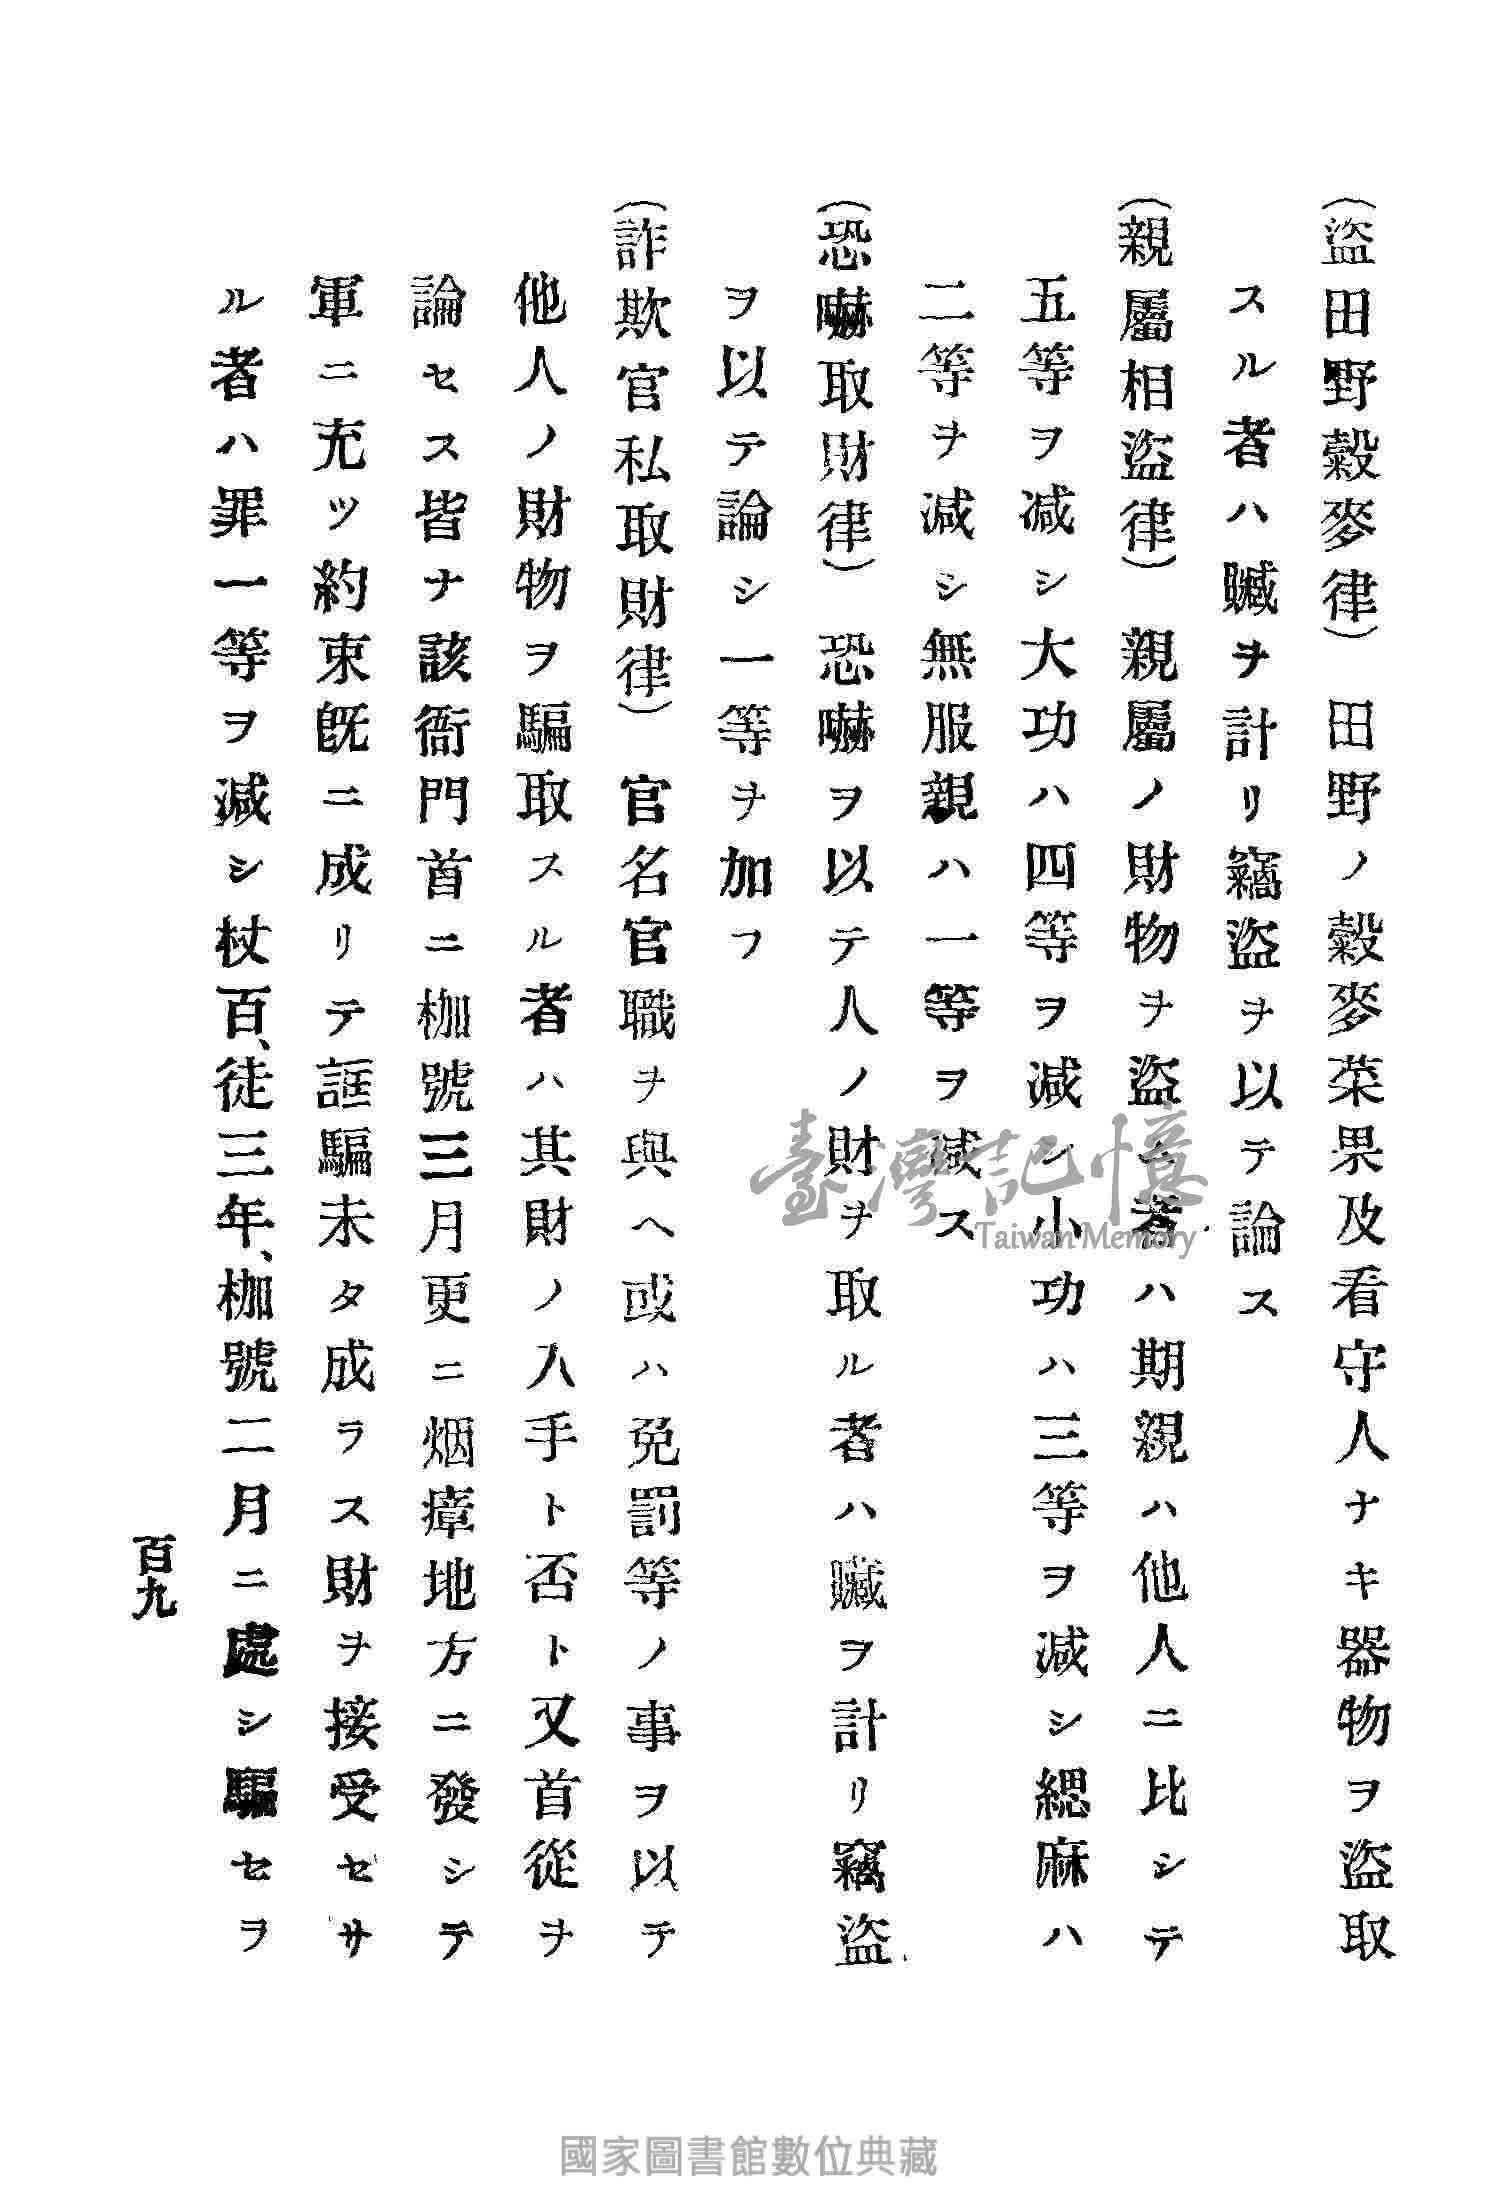 (盜田野穀麥律)　田野ノ穀麥菜果及看守人ナキ器物ヲ盜取
スル者ハ贓ヲ計リ竊盜ヲ以テ論ス
(親屬相盜律)親屬ノ財物ヲ盜ム者ハ期親ハ他人ニ比シテ
五等ヲ減シ大功ハ四等ヲ減シ小功ハ三等ヲ減シ緦麻ハ
二等ヲ減シ無服親ハ一等ヲ減ス
(恐嚇取財律)　恐嚇ヲ以テ人ノ財ヲ取ル者ハ贓ヲ計リ竊盜
ヲ以テ論シ一等ヲ加フ
(詐欺官私取財律)　官名官職ヲ與ヘ或ハ免罰等ノ事ヲ以テ
他人ノ財物ヲ騙取スル者ハ其財ノ入手ト否ト又首從ヲ
論セス皆ナ該衙門首ニ枷號三月更ニ烟瘴地方ニ發シテ
軍ニ充ツ約束旣ニ成リテ誆騙未タ成ラス財ヲ接受セサ
ル者ハ罪一等ヲ減シ杖百、徒三年、枷號二月ニ處シ騙セヲ
百九
臺灣記憶
Taiwan Memory
國家圖書館數位典藏